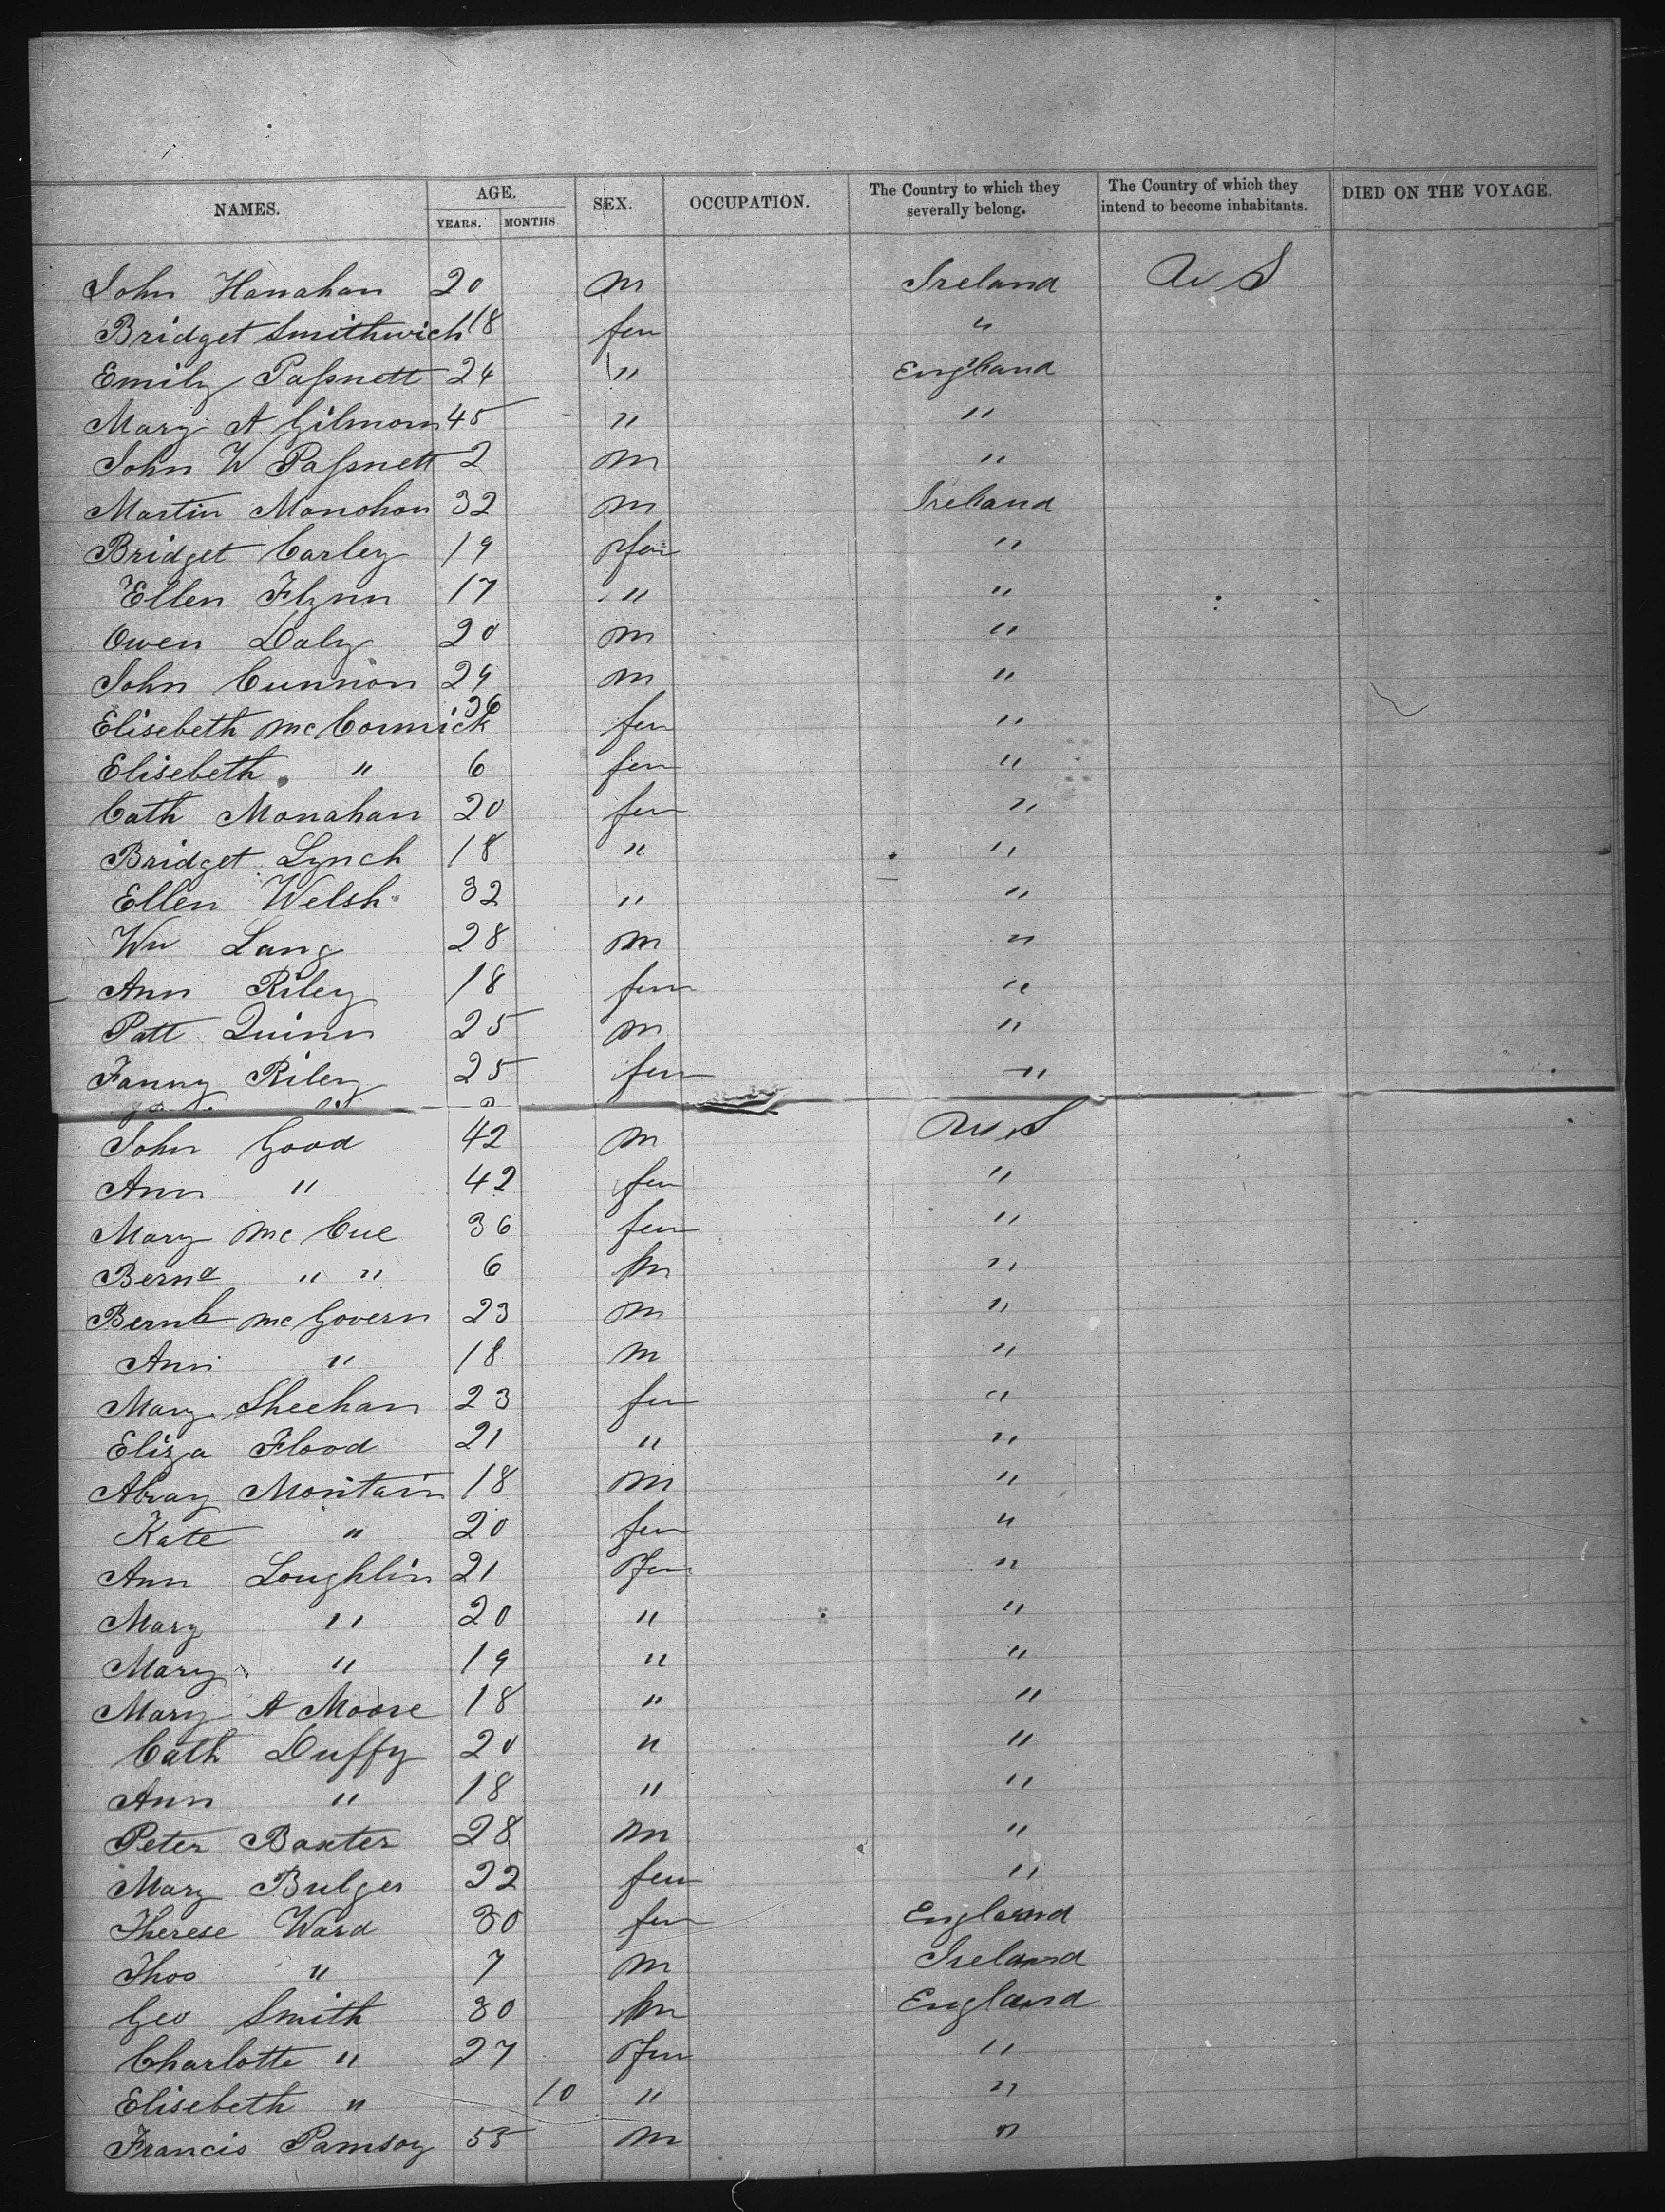 NAMES. AGE. SEX. OCCUPATION. The Country to which they severally belong. The Country of which they intend to become inhabitants. DIED ON THE VOYAGE.
YEARS. MONTHS
John Hanahan 20 m Ireland U S
Bridget Smithwich 18 fem "
Emily Paſsnett 24 " England
Mary A Gilmour 45 " "
John W Paſsnett 2 m "
Martin Monohon 32 m Ireland
Bridget Carley 19 fem "
Ellen Flynn 17 " "
Owen Daly 20 m "
John Cunnion 24 m "
Elisebeth McCormick 36 fem "
Elisebeth " 6 fem "
Cath Monahan 20 fem "
Bridget Lynch 18 " "
Ellen Welsh 32 " "
Wm Lang 28 m "
Ann Riley 18 fem "
Patt Quinn 25 m "
Fanny Riley 25 fem "
John Good 42 m U S
Ann " 42 fem "
Mary McCue 36 fem "
Bernd " " 6 m "
Bernh McGovern 23 m "
Ann " 18 m "
Mary Sheehan 23 fem "
Eliza Flood 21 " "
Montain 18 m "
Kate " 20 fem "
Ann Loughlin 21 fem "
Mary " 20 " "
Mary " 19 " "
Mary A Moore 18 " "
Cath Duffy 20 " "
Ann " 18 " "
Peter Baxter 28 m "
Mary Bulger 22 fem "
Therese Ward 30 fem England
Thos " 7 m Ireland
Geo Smith 30 m England
Charlotte " 27 fem "
Elisebeth " 10 " "
Francis Pamsoy 55 m "